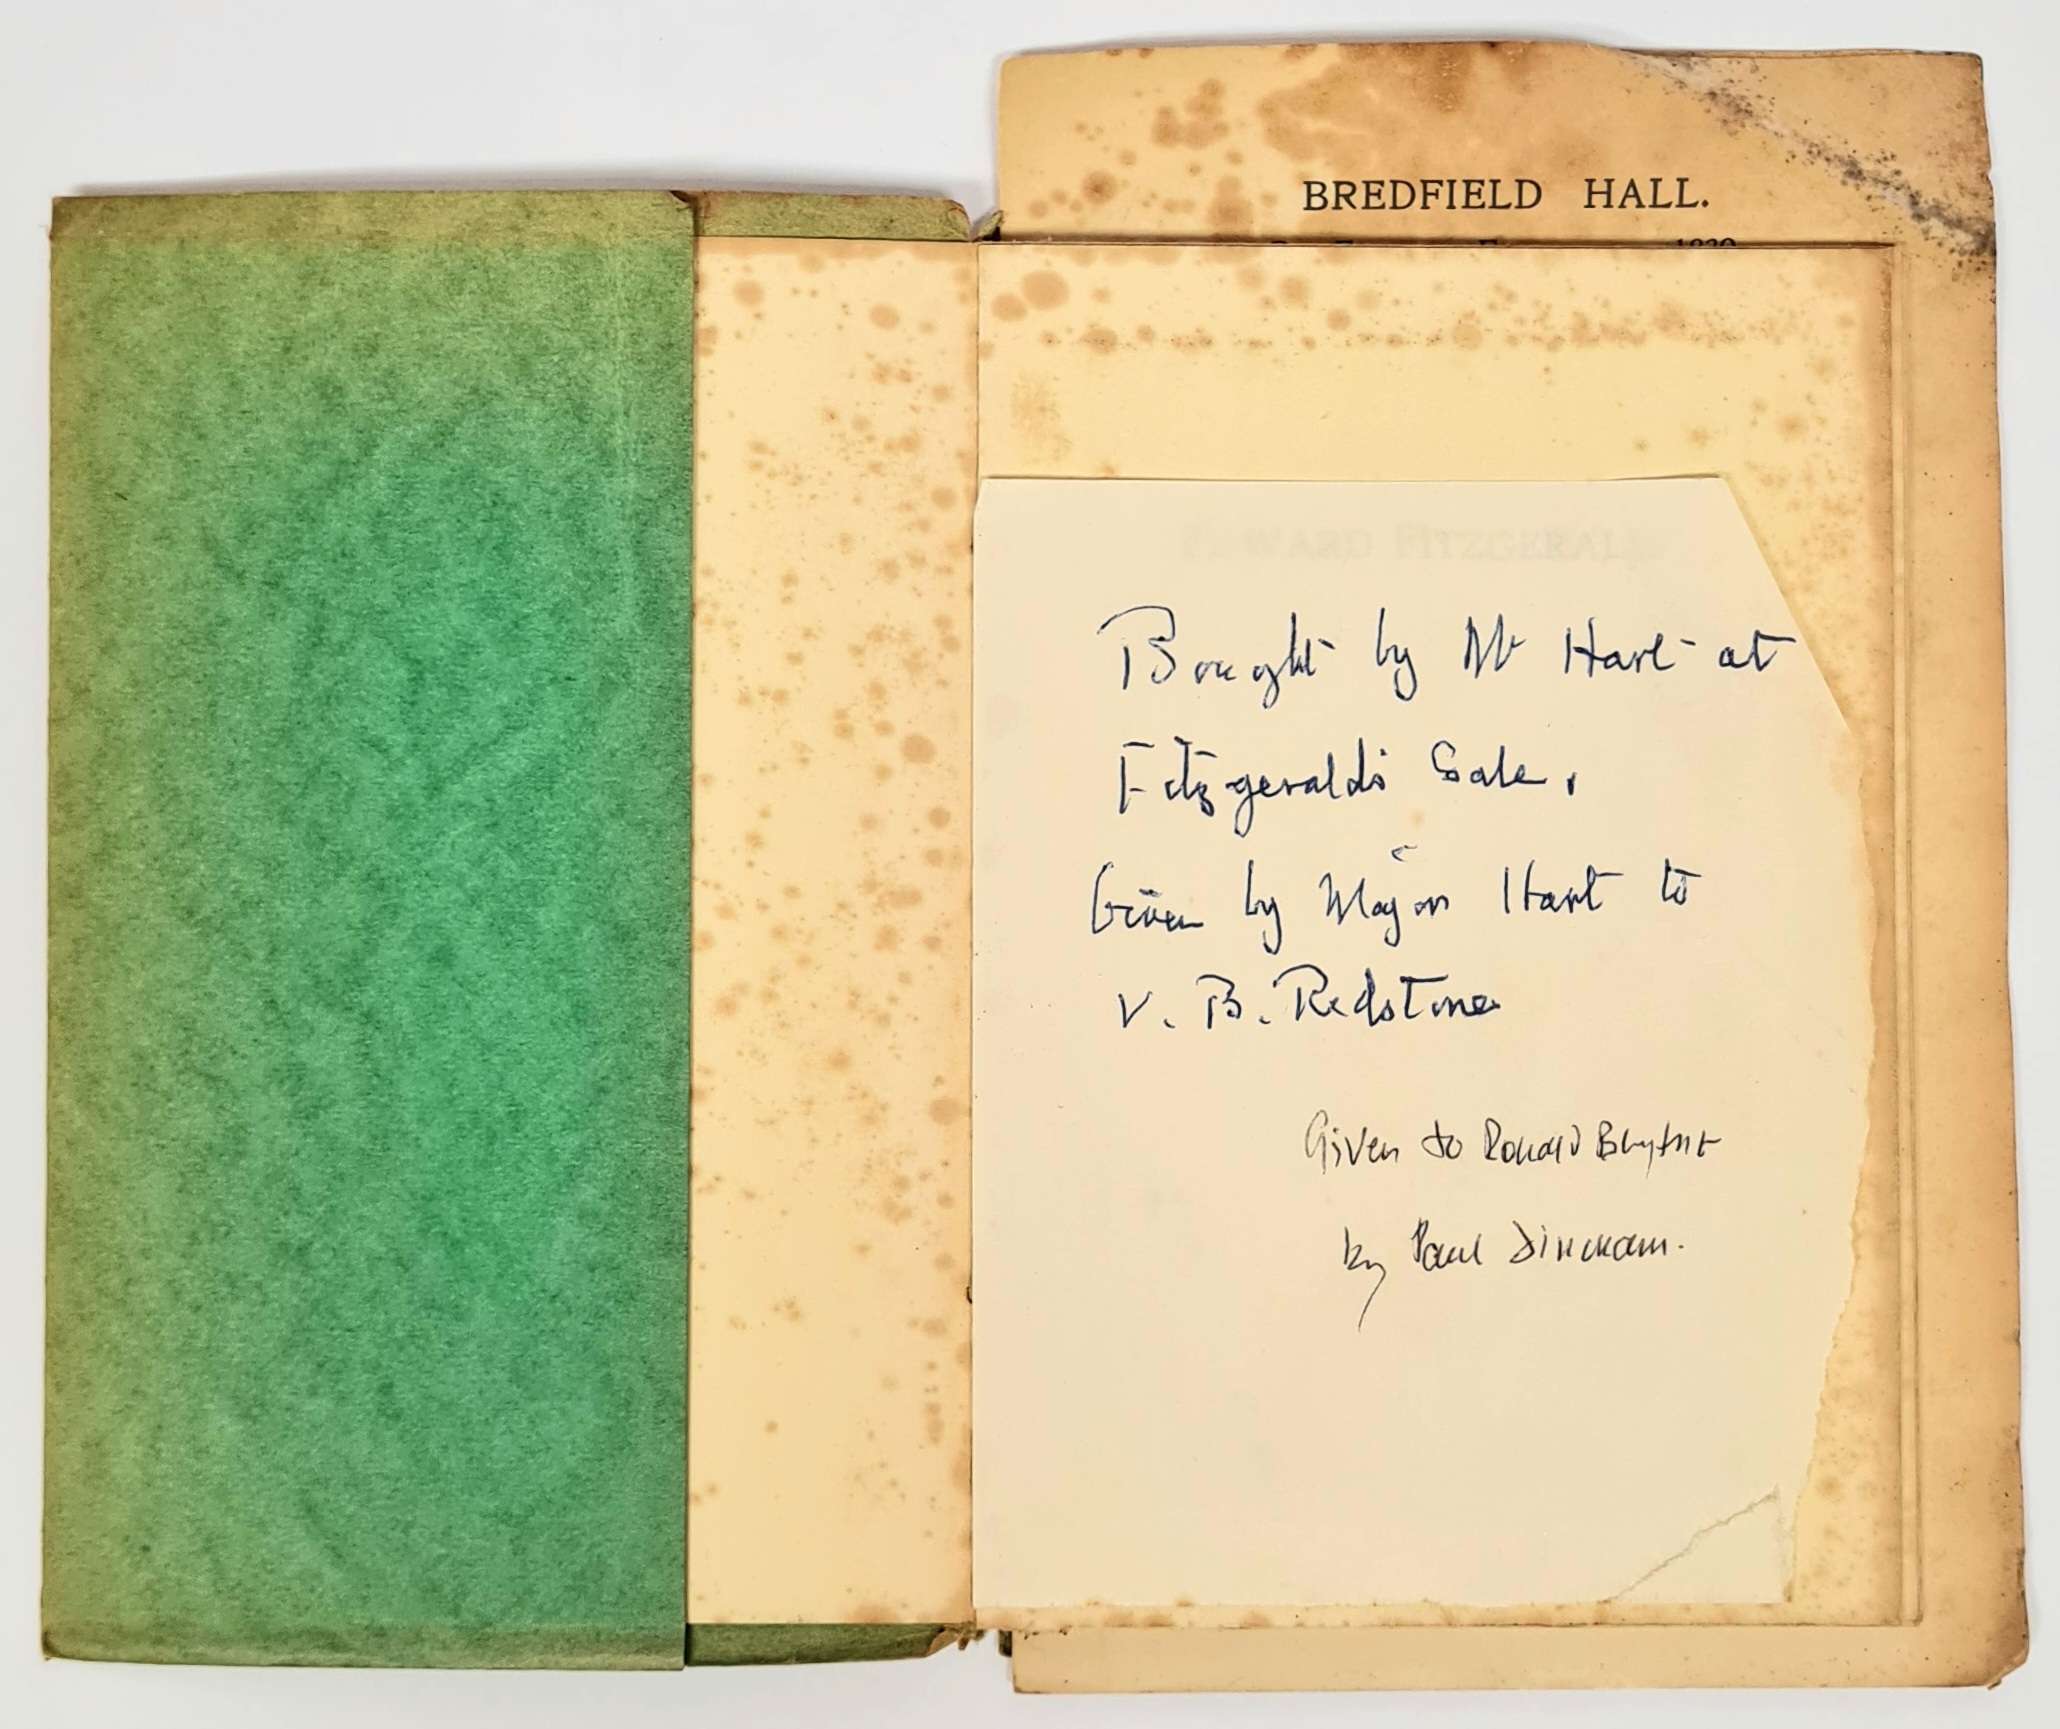 BREDFIELD HALL.
1839
EDWARD FITZGERALD
Bought by Mr Hart at
Fitzgerald's Sale.
Given by Major Hart to
V. B. Redstone
Given to Ronald Blythe
by Paul